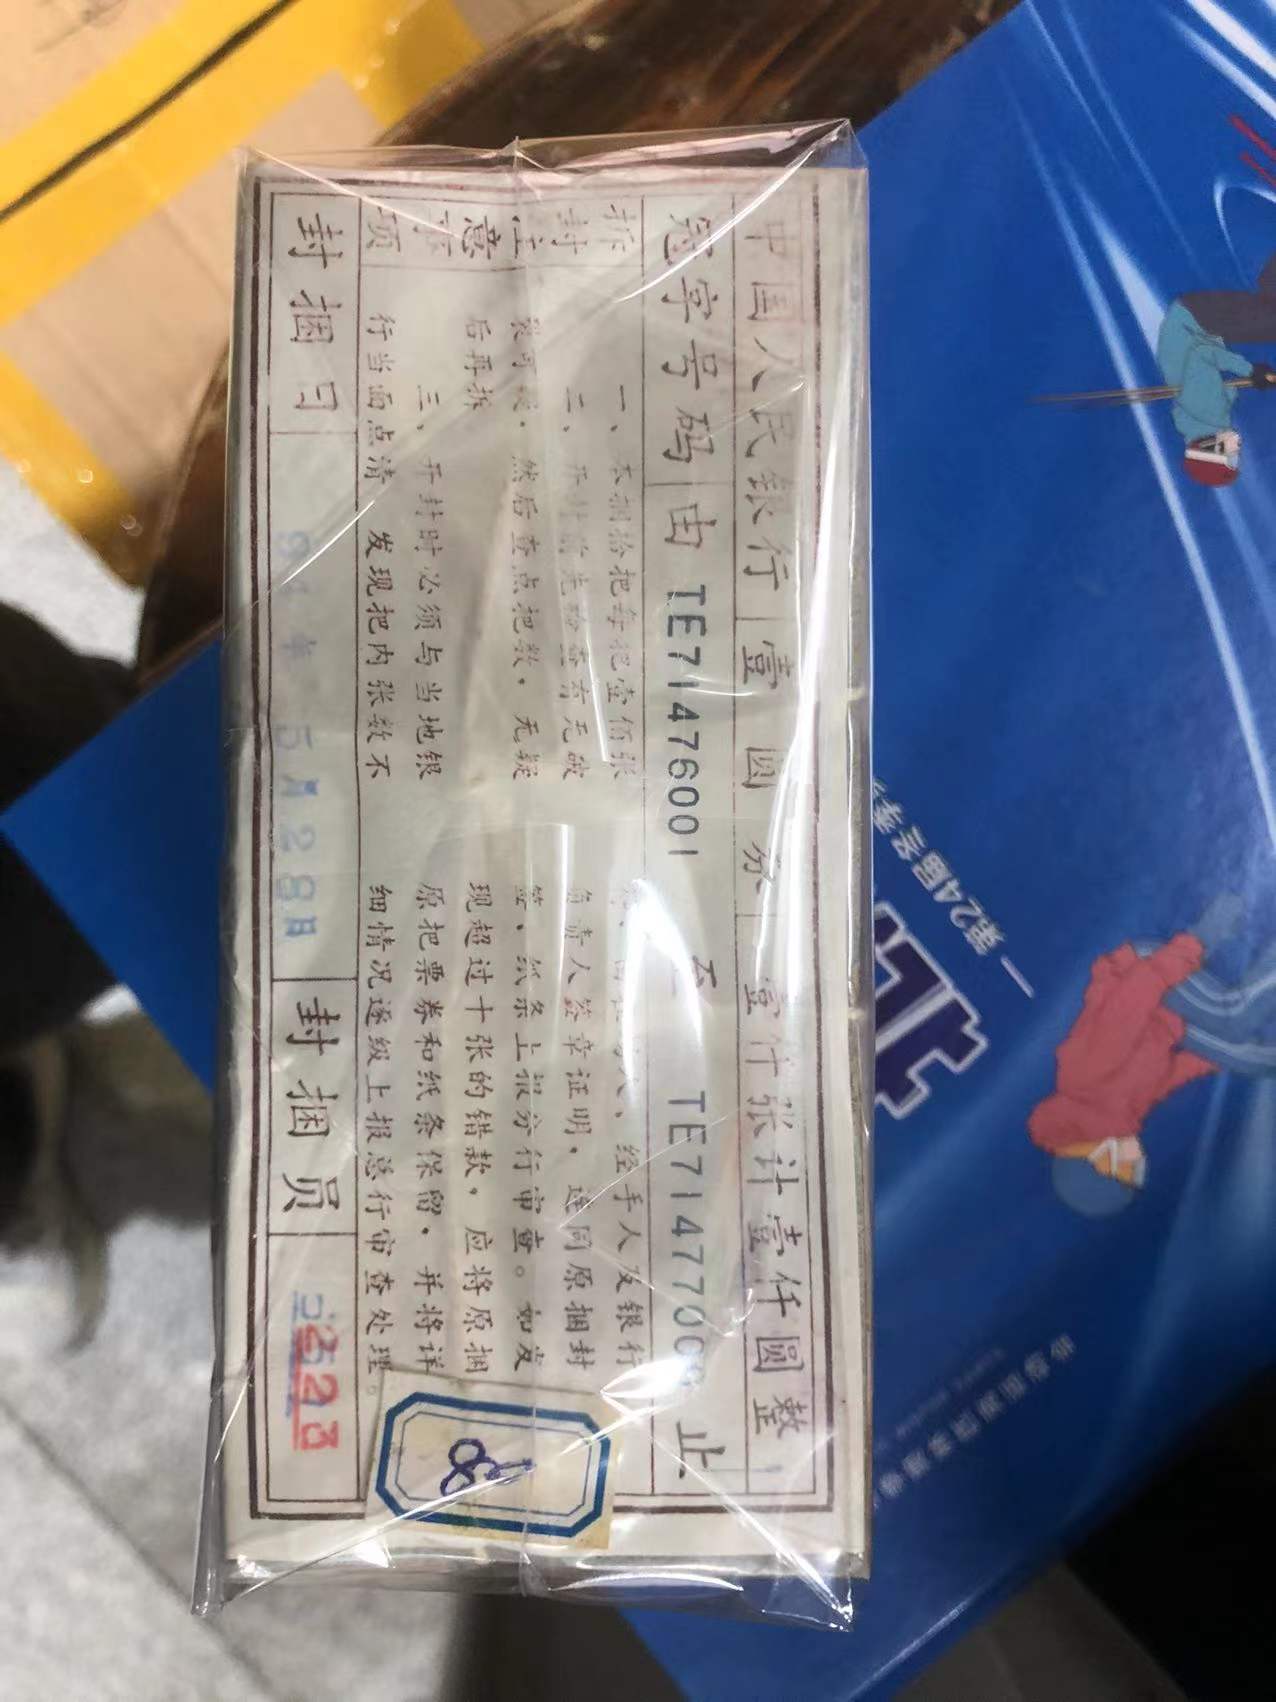 中国人民银行 壹圆券 壹仟张计壹仟圆整
冠字号码 由 TE71476001 至 TE71477000 止
拆封注意事项
一、本捆拾把每把壹佰张
二、开封前先检查有无破
裂可疑，然后查点把数，无疑
后再拆
三、开封时必须与当地银
行当面点清 发现把内张数不
经手人及银行
负责人签章证明，连同原捆封
签、纸条上报分行审查。如发
现超过十张的错款，应将原捆
原把票券和纸条保留，并将详
细情况逐级上报总行审查处理。
封捆日 年5月28日 封捆员 2523
第24届冬季